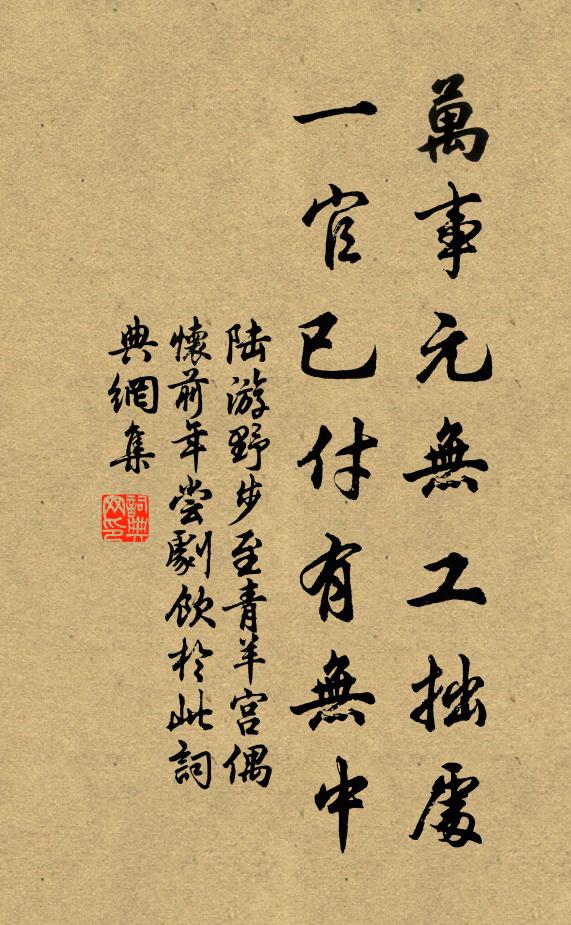 萬事元無工拙處
一官已付有無中
陆游野步至青羊宮偶
懷前年尝劇飲於此詞
典網集
詞典
网印